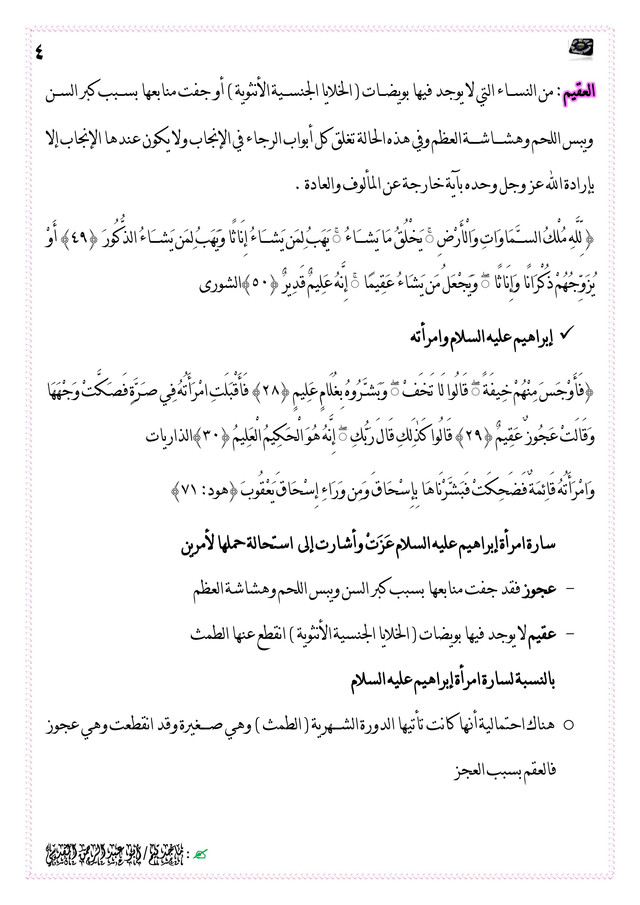 ٤
العقيم : من النساء التي لا يوجد فيها بويضات ( الخلايا الجنسية الأنثوية ) أو جفت منابعها بسبب كبر السن
ويبس اللحم وهشاشة العظم وفي هذه الحالة تغلق كل أبواب الرجاء في الإنجاب ولا يكون عندها الإنجاب إلا
بإرادة الله عز وجل وحده بآية خارجة عن المألوف والعادة .
﴿ لِّلَّهِ مُلْكُ السَّمَاوَاتِ وَالْأَرْضِ ۚ يَخْلُقُ مَا يَشَاءُ ۚ يَهَبُ لِمَن يَشَاءُ إِنَاثًا وَيَهَبُ لِمَن يَشَاءُ الذُّكُورَ ﴿٤٩﴾ أَوْ
يُزَوِّجُهُمْ ذُكْرَانًا وَإِنَاثًا ۖ وَيَجْعَلُ مَن يَشَاءُ عَقِيمًا ۚ إِنَّهُ عَلِيمٌ قَدِيرٌ ﴿٥٠﴾الشورى
✓ إبراهيم عليه السلام وامرأته
﴿فَأَوْجَسَ مِنْهُمْ خِيفَةً ۖ قَالُوا لَا تَخَفْ ۖ وَبَشَّرُوهُ بِغُلَامٍ عَلِيمٍ ﴿٢٨﴾ فَأَقْبَلَتِ امْرَأَتُهُ فِي صَرَّةٍ فَصَكَّتْ وَجْهَهَا
وَقَالَتْ عَجُوزٌ عَقِيمٌ ﴿٢٩﴾ قَالُوا كَذَٰلِكِ قَالَ رَبُّكِ ۖ إِنَّهُ هُوَ الْحَكِيمُ الْعَلِيمُ ﴿٣٠﴾الذاريات
وَامْرَأَتُهُ قَائِمَةٌ فَضَحِكَتْ فَبَشَّرْنَاهَا بِإِسْحَاقَ وَمِن وَرَاءِ إِسْحَاقَ يَعْقُوبَ ﴿هود: ٧١﴾
سارة امرأة إبراهيم عليه السلام عَزَتْ وأشارت إلى استحالة حملها لأمرين
- عجوز فقد جفت منابعها بسبب كبر السن ويبس اللحم وهشاشة العظم
- عقيم لا يوجد فيها بويضات ( الخلايا الجنسية الأنثوية ) انقطع عنها الطمث
بالنسبة لسارة امرأة إبراهيم عليه السلام
○ هناك احتمالية أنها كانت تأتيها الدورة الشهرية ( الطمث ) وهي صغيرة وقد انقطعت وهي عجوز
فالعقم بسبب العجز